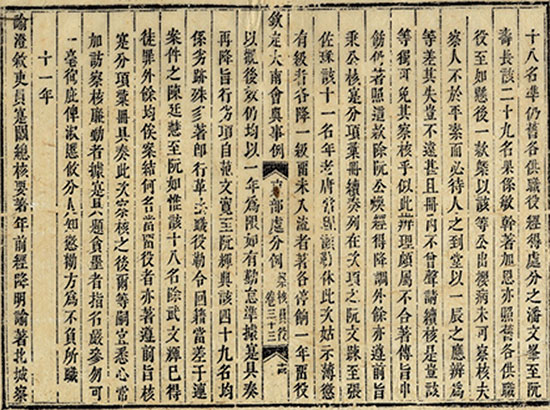 十八名準仍舊各供職役經得處分之潘文峯至阮
壽長該二十九名果係敏幹著加恩亦照舊各供職
役至如懸後一款槩以該等公出嬰病未可察核夫
察人不於平素而必待人之到堂以一辰之應辨爲
等差其失豈不遠甚且冊內不曾聲請續核是豈該
等獨可免其察核乎似此辨理頗屬不合著傳旨申
飭仍著照遵款除阮公煥經得降調外餘亦遵前旨
秉公核寔分項彙冊續奏列在次項之阮文踈至張
佐琛該十一名年老庸常應勒休此次姑示薄懲
有級者各降一級留未入流者著各停餉一年留役
欽定大南會典事例 吏部處分例 察核員役 卷三十三 十四
以觀後效仍均以一年爲限如有勤怠準據寔具奏
再降旨行劣項自范文寬至阮輝與該四十九名均
係劣跡殊彰著即行革去職役勒令回籍當差干連
案件之陳廷慧至阮如惟該十八名除武文輝已得
徒罪外餘均俟案結何名當留役者亦著遵前旨核
寔分項彙冊具奏此次察核之後爾等嗣宜悉心常
加訪察核廉勤者據寔具題貪墨者指名嚴參勿可
一毫徇庇俾淑慝攸分人知懲勸方爲不負所職
十一年
諭澄敘吏員寔關總核要著年前經降明諭著北城察